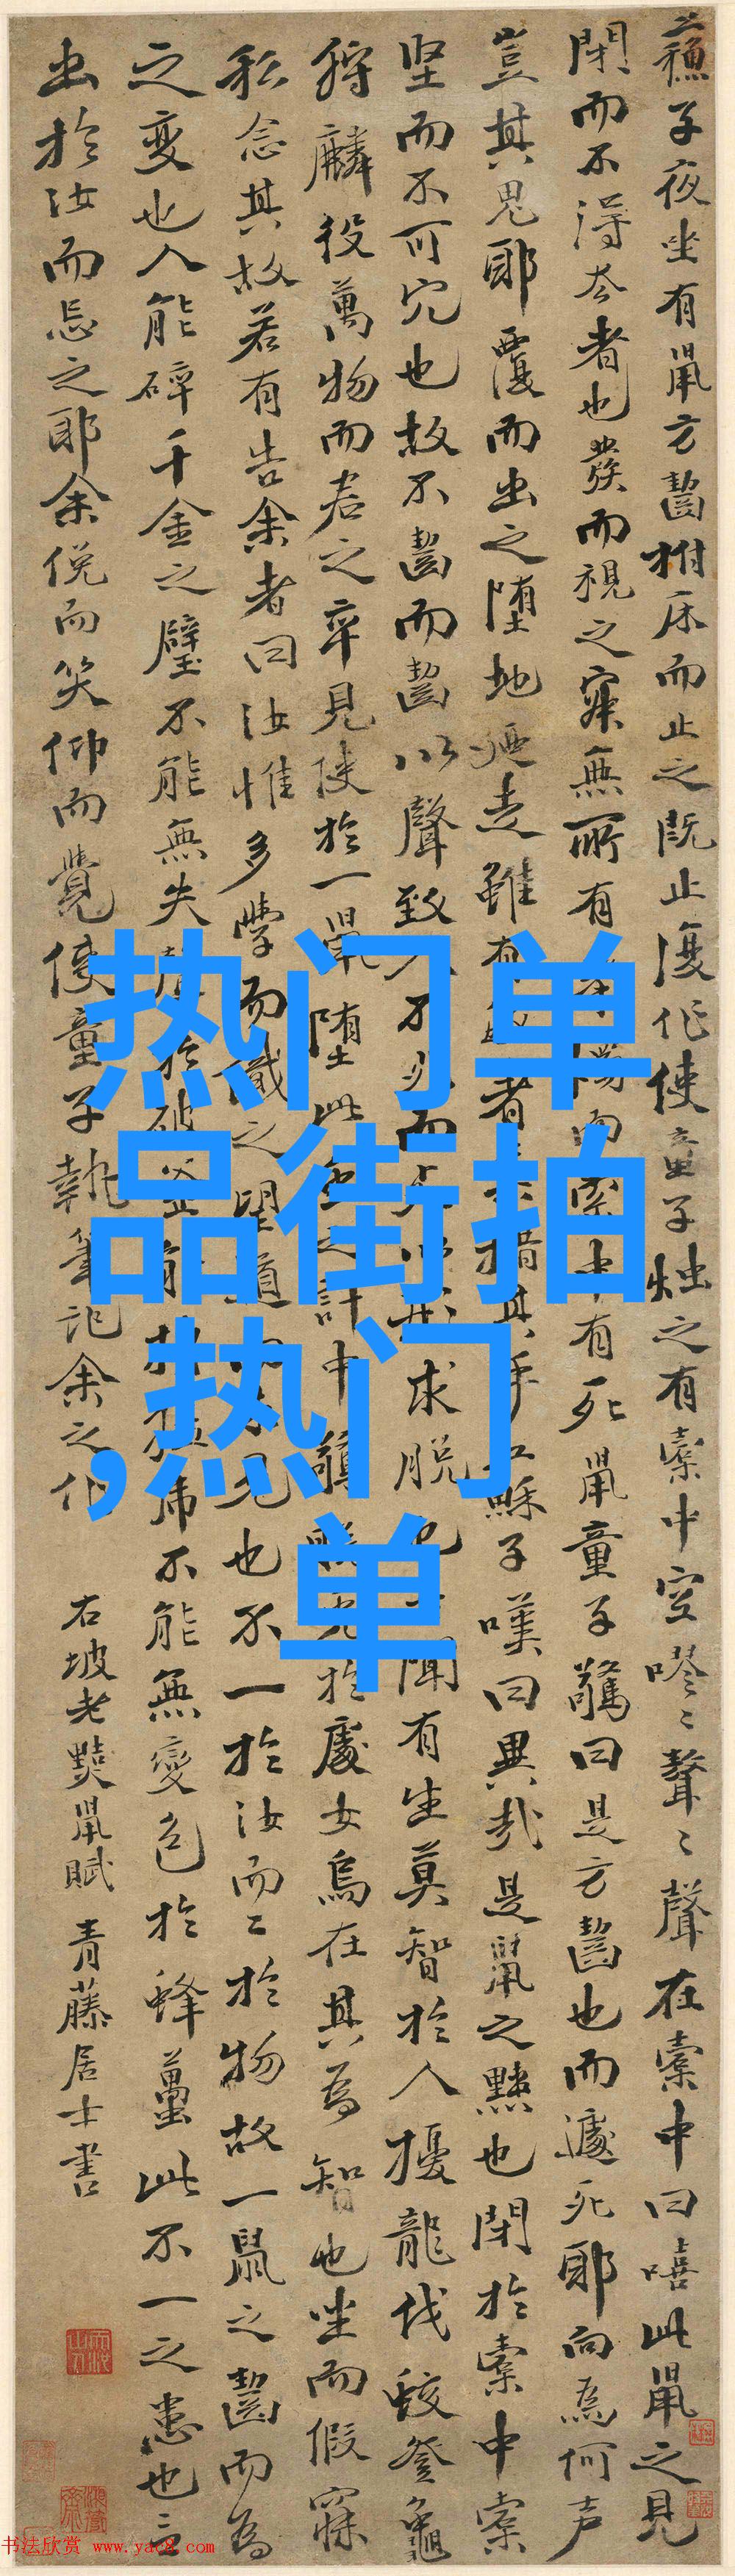 蘓子夜坐有鼠方齧拊床而止之既止復作使童子燭之有橐中空嘐〻聱〻聲在橐中曰嘻此鼠之見
閉而不得去者也發而視之寂無所有 而索中有死鼠童子驚曰是方齧也而遽死耶向為何声
豈其鬼耶覆而出之墮地廼走雖有 者 措其手 蘇子嘆曰異哉是鼠之黠也閉於橐中橐
坚而不可穴也故不齧而齧以聲致人不死而 以形求脱也 聞有生莫智於人擾龍伐蛟登龜
狩麟役萬物而君之卒見使於一鼠堕此 之計中驚 於處女烏在其為智也坐而假寐
私念其故若有告余者曰汝惟多學而識之望道 未見也不一於汝而二於物故一鼠之齧而為
之変也人能碎千金之璧不能無失聲於破釜 能搏 虎不能無變色於蜂蠆此不一之患也言
出於汝而忘之耶余俛而笑仰而覺使童子執筆記余之作
右坡老黠鼠賦 青藤居士書
热门单
品街拍
,热门
单
书法欣赏 www.yac8.com